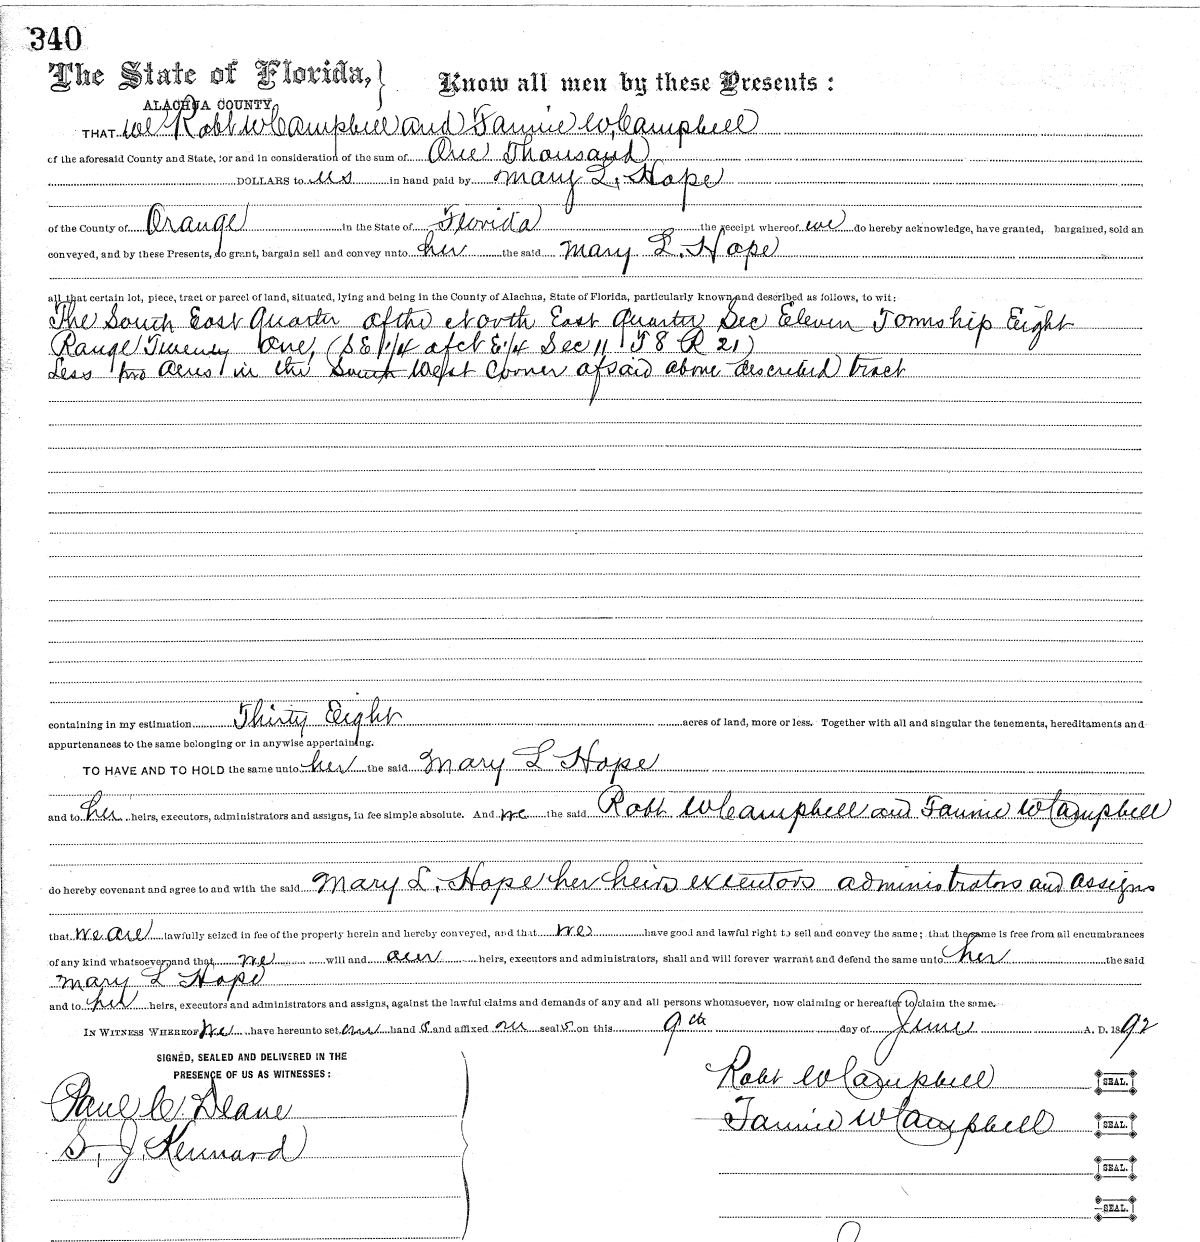 340
The State of Florida, } Know all men by these Presents :
ALACHUA COUNTY
THAT we Robt W Campbell and Fannie W. Campbell
of the aforesaid County and State, for and in consideration of the sum of One Thousand
DOLLARS to us in hand paid by Mary L. Hope
of the County of Orange in the State of Florida the receipt whereof we do hereby acknowledge, have granted, bargained, sold an
conveyed, and by these Presents, do grant, bargain sell and convey unto her the said Mary L. Hope
all that certain lot, piece, tract or parcel of land, situated, lying and being in the County of Alachua, State of Florida, particularly known and described as follows, to wit:
The South East Quarter of the North East Quarter Sec Eleven Township Eight
Range Twenty One, (S E 1/4 of N E 1/4 Sec 11 T 8 R 21)
Less two acres in the South West Corner of said above described tract
containing in my estimation Thirty Eight acres of land, more or less. Together with all and singular the tenements, hereditaments and
appurtenances to the same belonging or in anywise appertaining.
TO HAVE AND TO HOLD the same unto her the said Mary L Hope
and to her heirs, executors, administrators and assigns, in fee simple absolute. And we the said Robt W Campbell and Fannie W Campbell
do hereby covenant and agree to and with the said Mary L. Hope her heirs executors administrators and assigns
that we are lawfully seized in fee of the property herein and hereby conveyed, and that we have good and lawful right to sell and convey the same; that the same is free from all encumbrances
of any kind whatsoever and that we will and our heirs, executors and administrators, shall and will forever warrant and defend the same unto her the said
Mary L Hope
and to her heirs, executors and administrators and assigns, against the lawful claims and demands of any and all persons whomsoever, now claiming or hereafter to claim the same.
IN WITNESS WHEREOF we have hereunto set our hand s and affixed our seal s on this 9th day of June A. D. 1892
SIGNED, SEALED AND DELIVERED IN THE
PRESENCE OF US AS WITNESSES :
Robt W Campbell SEAL.
Paul C. Deane
Fannie W Campbell SEAL.
S. J. Kennard
SEAL.
SEAL.